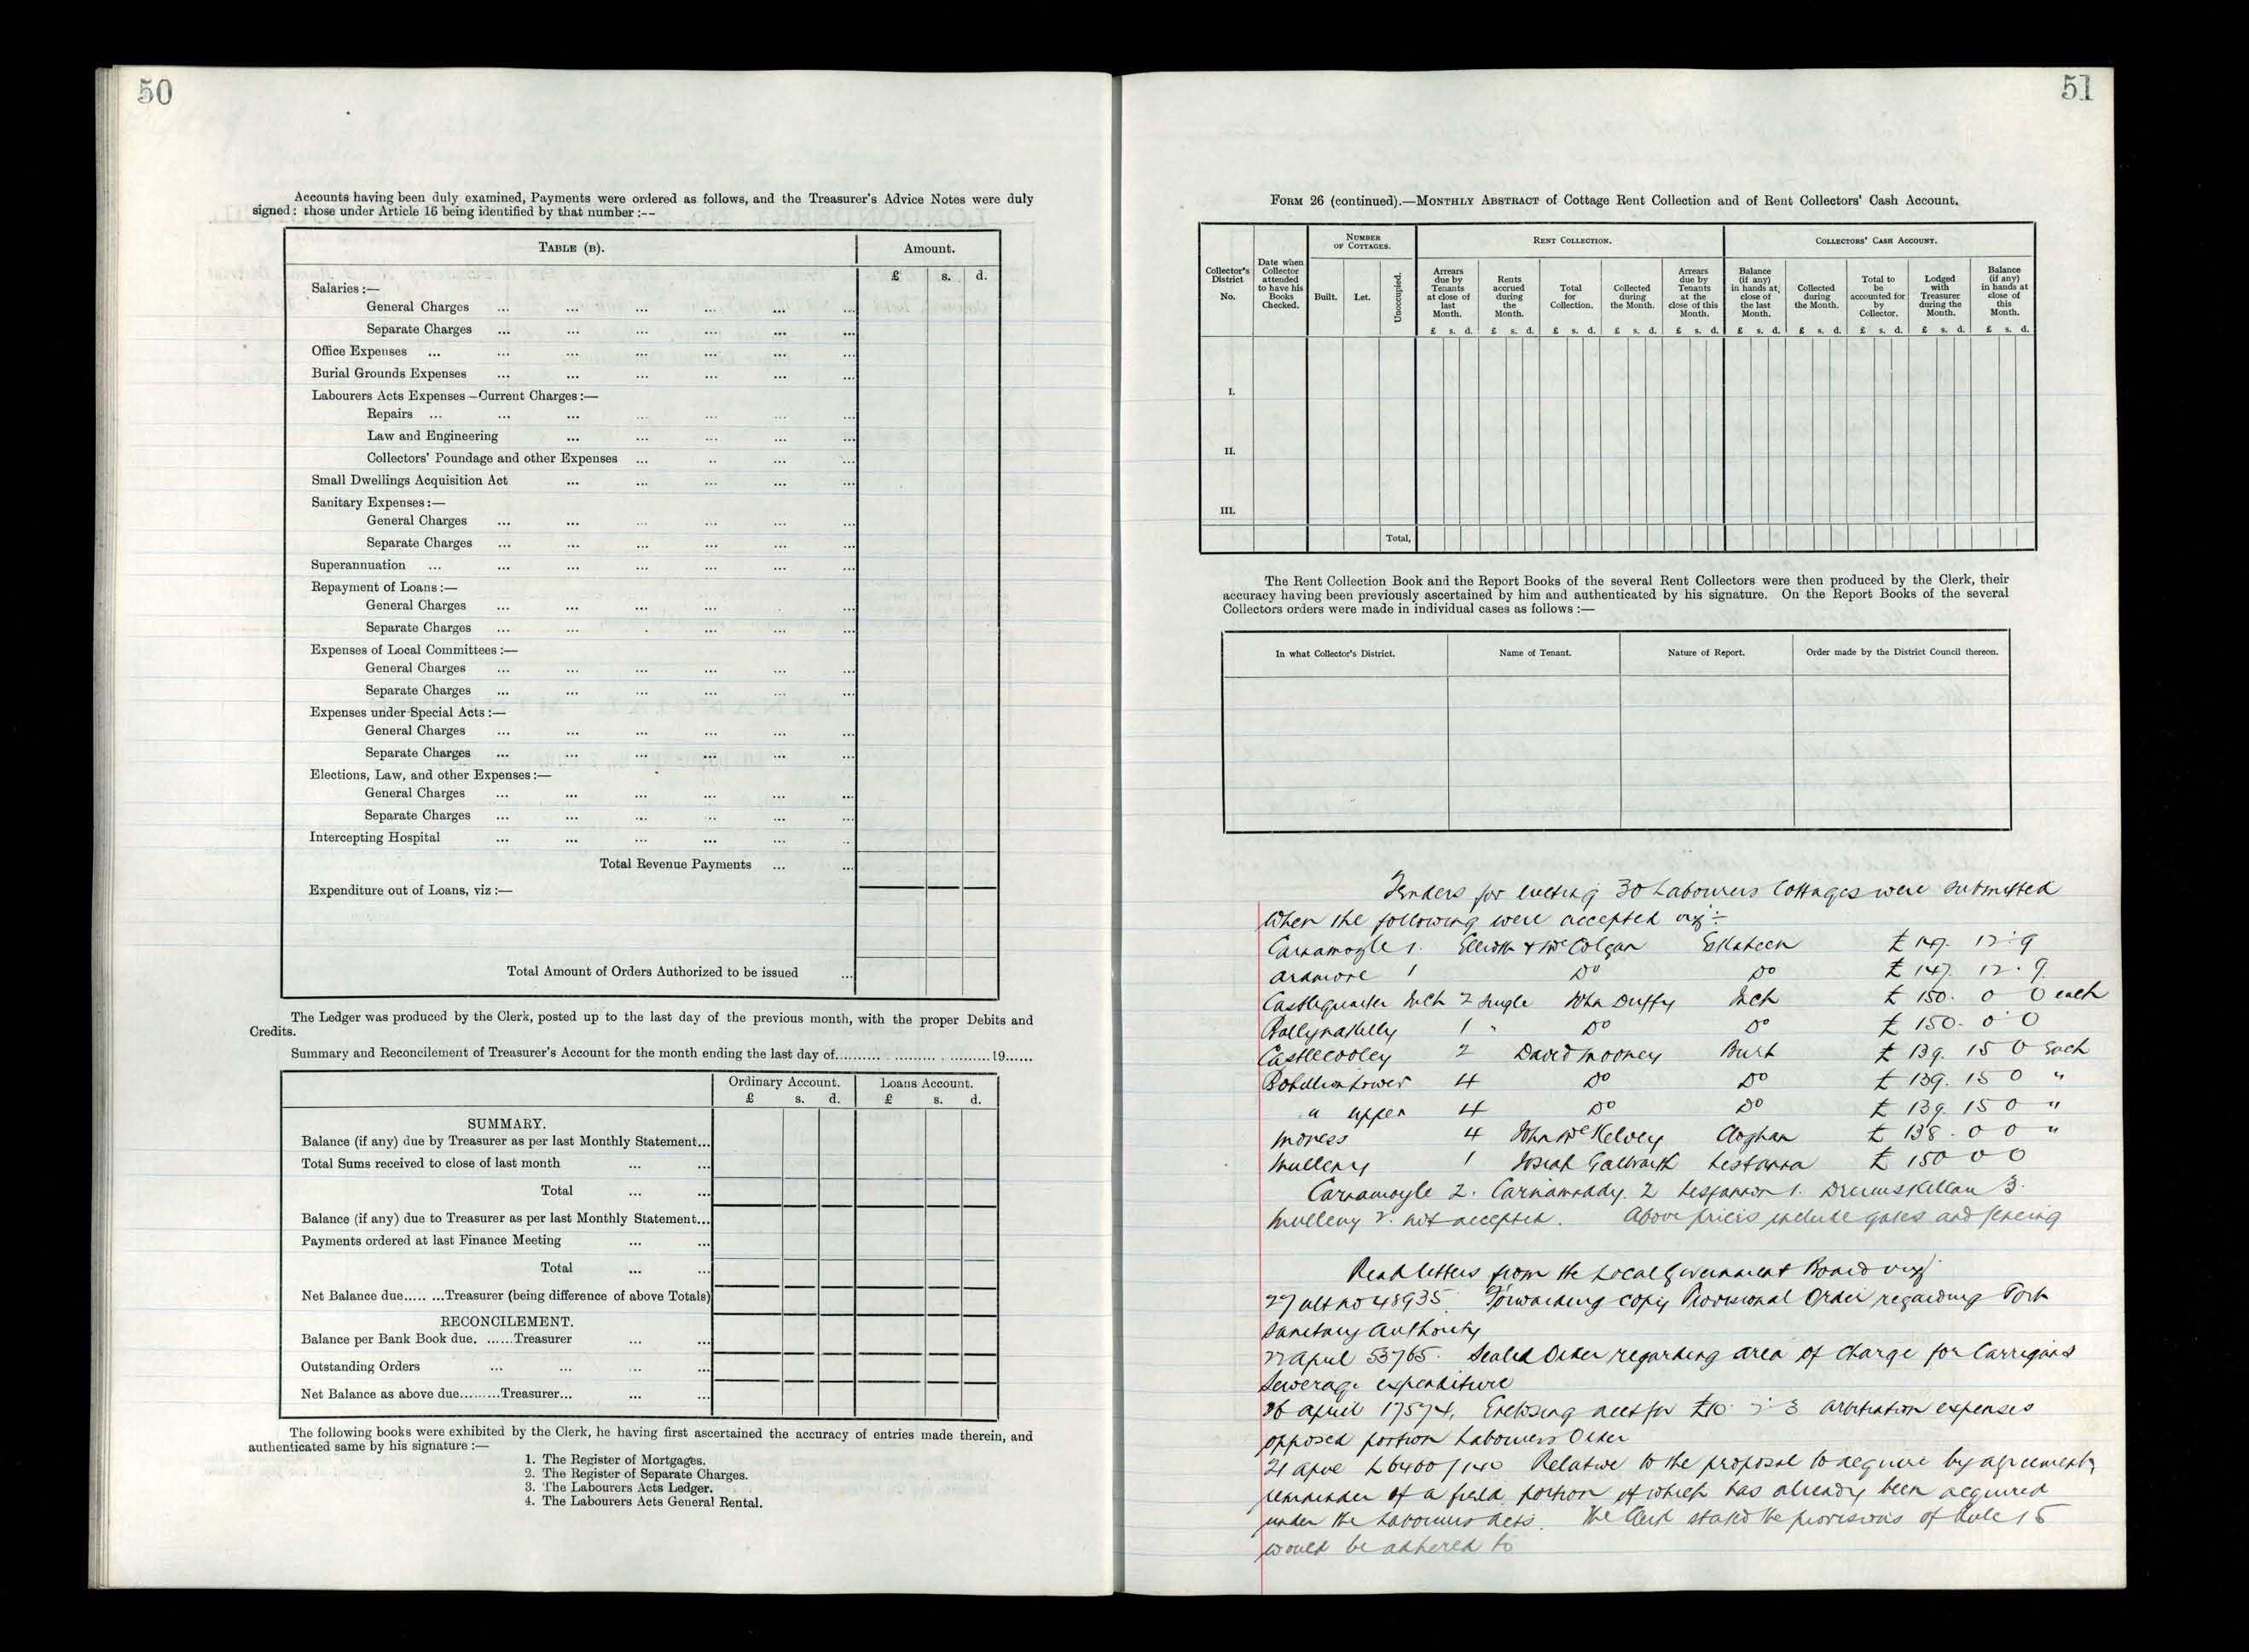 50
Accounts having been duly examined, Payments were ordered as follows, and the Treasurer's Advice Notes were duly
signed: those under Article 16 being identified by that number :--
TABLE (B). Amount.
£ s. d.
Salaries :—
General Charges ... ... ... ... ... ...
Separate Charges ... ... ... ... ... ...
Office Expenses ... ... ... ... ... ... ...
Burial Grounds Expenses ... ... ... ... ... ...
Labourers Acts Expenses—Current Charges :—
Repairs ... ... ... ... ... ... ...
Law and Engineering ... ... ... ... ...
Collectors' Poundage and other Expenses ... ... ... ...
Small Dwellings Acquisition Act ... ... ... ... ...
Sanitary Expenses :—
General Charges ... ... ... ... ... ...
Separate Charges ... ... ... ... ... ...
Superannuation ... ... ... ... ... ... ...
Repayment of Loans :—
General Charges ... ... ... ... ... ...
Separate Charges ... ... ... ... ... ...
Expenses of Local Committees :—
General Charges ... ... ... ... ... ...
Separate Charges ... ... ... ... ... ...
Expenses under Special Acts :—
General Charges ... ... ... ... ... ...
Separate Charges ... ... ... ... ... ...
Elections, Law, and other Expenses :—
General Charges ... ... ... ... ... ...
Separate Charges ... ... ... ... ... ...
Intercepting Hospital ... ... ... ... ... ...
Total Revenue Payments ... ...
Expenditure out of Loans, viz :—
Total Amount of Orders Authorized to be issued ...
The Ledger was produced by the Clerk, posted up to the last day of the previous month, with the proper Debits and
Credits.
Summary and Reconcilement of Treasurer's Account for the month ending the last day of.............................19......
Ordinary Account. Loans Account.
£ s. d. £ s. d.
SUMMARY.
Balance (if any) due by Treasurer as per last Monthly Statement...
Total Sums received to close of last month ... ...
Total ... ...
Balance (if any) due to Treasurer as per last Monthly Statement...
Payments ordered at last Finance Meeting ... ...
Total ... ...
Net Balance due........Treasurer (being difference of above Totals)
RECONCILEMENT.
Balance per Bank Book due. ......Treasurer ... ...
Outstanding Orders ... ... ... ...
Net Balance as above due.........Treasurer... ... ...
The following books were exhibited by the Clerk, he having first ascertained the accuracy of entries made therein, and
authenticated same by his signature :—
1. The Register of Mortgages.
2. The Register of Separate Charges.
3. The Labourers Acts Ledger.
4. The Labourers Acts General Rental.
51
FORM 26 (continued).—MONTHLY ABSTRACT of Cottage Rent Collection and of Rent Collectors' Cash Account.
Collector's District No. Date when Collector attended to have his Books Checked. NUMBER OF COTTAGES. RENT COLLECTION. COLLECTORS' CASH ACCOUNT.
Built. Let. Unoccupied. Arrears due by Tenants at close of last Month. Rents accrued during the Month. Total for Collection. Collected during the Month. Arrears due by Tenants at the close of this Month. Balance (if any) in hands at close of the last Month. Collected during the Month. Total to be accounted for by Collector. Lodged with Treasurer during the Month. Balance (if any) in hands at close of this Month.
£ s. d. £ s. d. £ s. d. £ s. d. £ s. d. £ s. d. £ s. d. £ s. d. £ s. d. £ s. d.
I.
II.
III.
Total,
The Rent Collection Book and the Report Books of the several Rent Collectors were then produced by the Clerk, their
accuracy having been previously ascertained by him and authenticated by his signature. On the Report Books of the several
Collectors orders were made in individual cases as follows :—
In what Collector's District. Name of Tenant. Nature of Report. Order made by the District Council thereon.
Tenders for erecting 30 Labourers Cottages were submitted
When the following were accepted viz :-
Carnamoyle 1. Elliott & McColgan Eskaheen £147. 12. 9
Ardmore 1 Do Do £147. 12. 9.
Castlequarter Inch 2 single John Duffy Inch £150. 0 0 each
Ballynakelly 1 " Do Do £150. 0 0
Castlecooley 2 David Mooney Burt £139. 15 0 Each
Bohillion Lower 4 Do Do £139. 15 0 "
" upper 4 Do Do £139. 15 0 "
Moness 4 John McKelvey Cloghan £138. 0 0 "
Mulleny 1 Josiah Galbraith £150 0 0
Carnamoyle 2. Carnamaddy. 2 Lisfannon 1. Drumskellan 3.
Mulleny 2. not accepted. Above prices include gates and fencing
Read letters from the Local Government Board viz
27 ult no 48935. Forwarding copy Provisional Order regarding Port
Sanitary Authority
22 April 53765. Sealed Order regarding area of charge for Carrigans
Sewerage expenditure
26 April 17574. Enclosing acct for £10. arbitration expenses
opposed portion Labourers Order
21 April L6400/140 Relative to the proposal to acquire by agreement
remainder of a field portion of which has already been acquired
under the Labourers Acts. The Clerk stated the provisions of Rule 15
would be adhered to